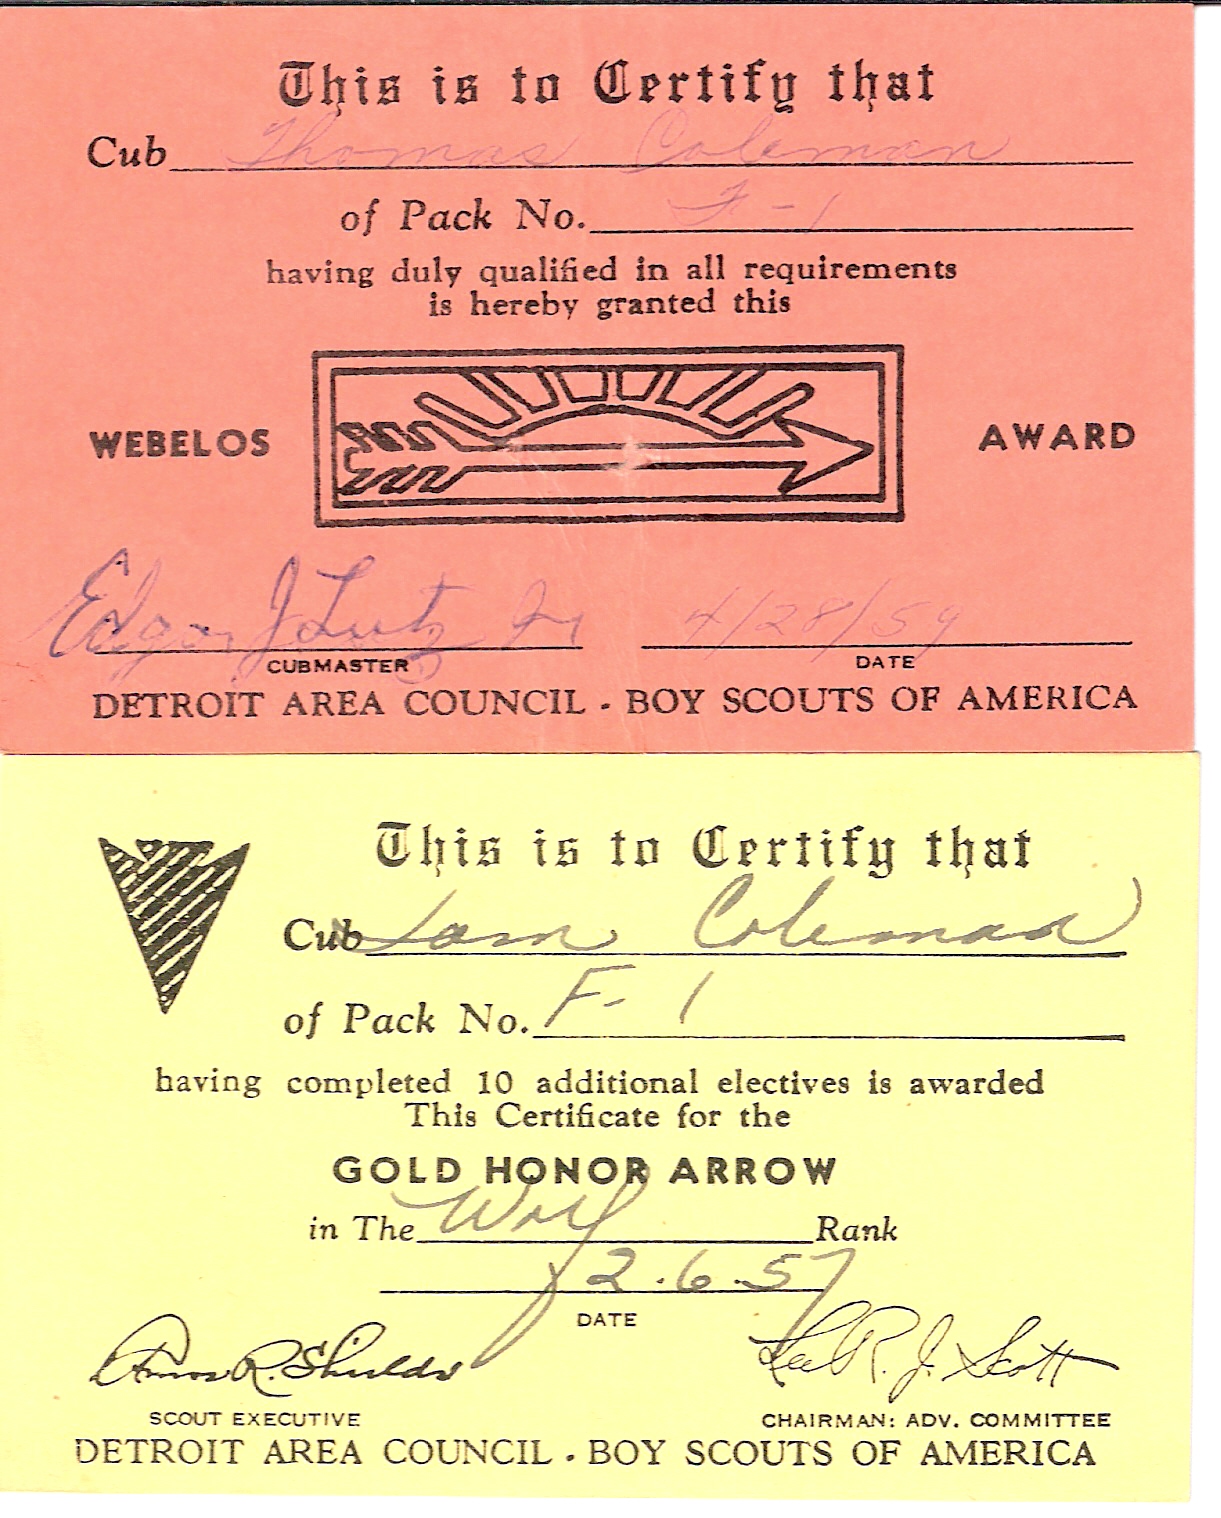 This is to Certify that
Cub Thomas Coleman
of Pack No. F-1
having duly qualified in all requirements
is hereby granted this
WEBELOS AWARD
Edgar J Lutz Jr 4/28/59
CUBMASTER DATE
DETROIT AREA COUNCIL - BOY SCOUTS OF AMERICA
This is to Certify that
Cub Coleman
of Pack No. F-1
having completed 10 additional electives is awarded
This Certificate for the
GOLD HONOR ARROW
in The Wolf Rank
12.6.57
DATE
Amos R. Shields R. J. Scott
SCOUT EXECUTIVE CHAIRMAN: ADV. COMMITTEE
DETROIT AREA COUNCIL - BOY SCOUTS OF AMERICA